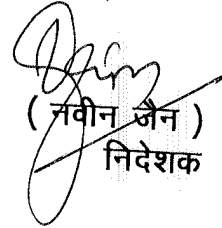 ( नवीन जैन )
निदेशक